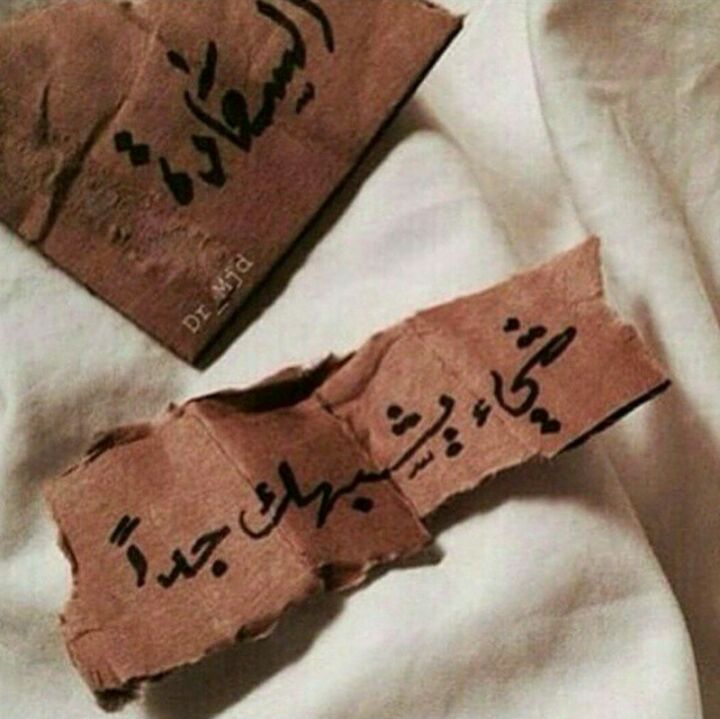 السعادة
Dr_Mjd
شيء يشبهك جداً